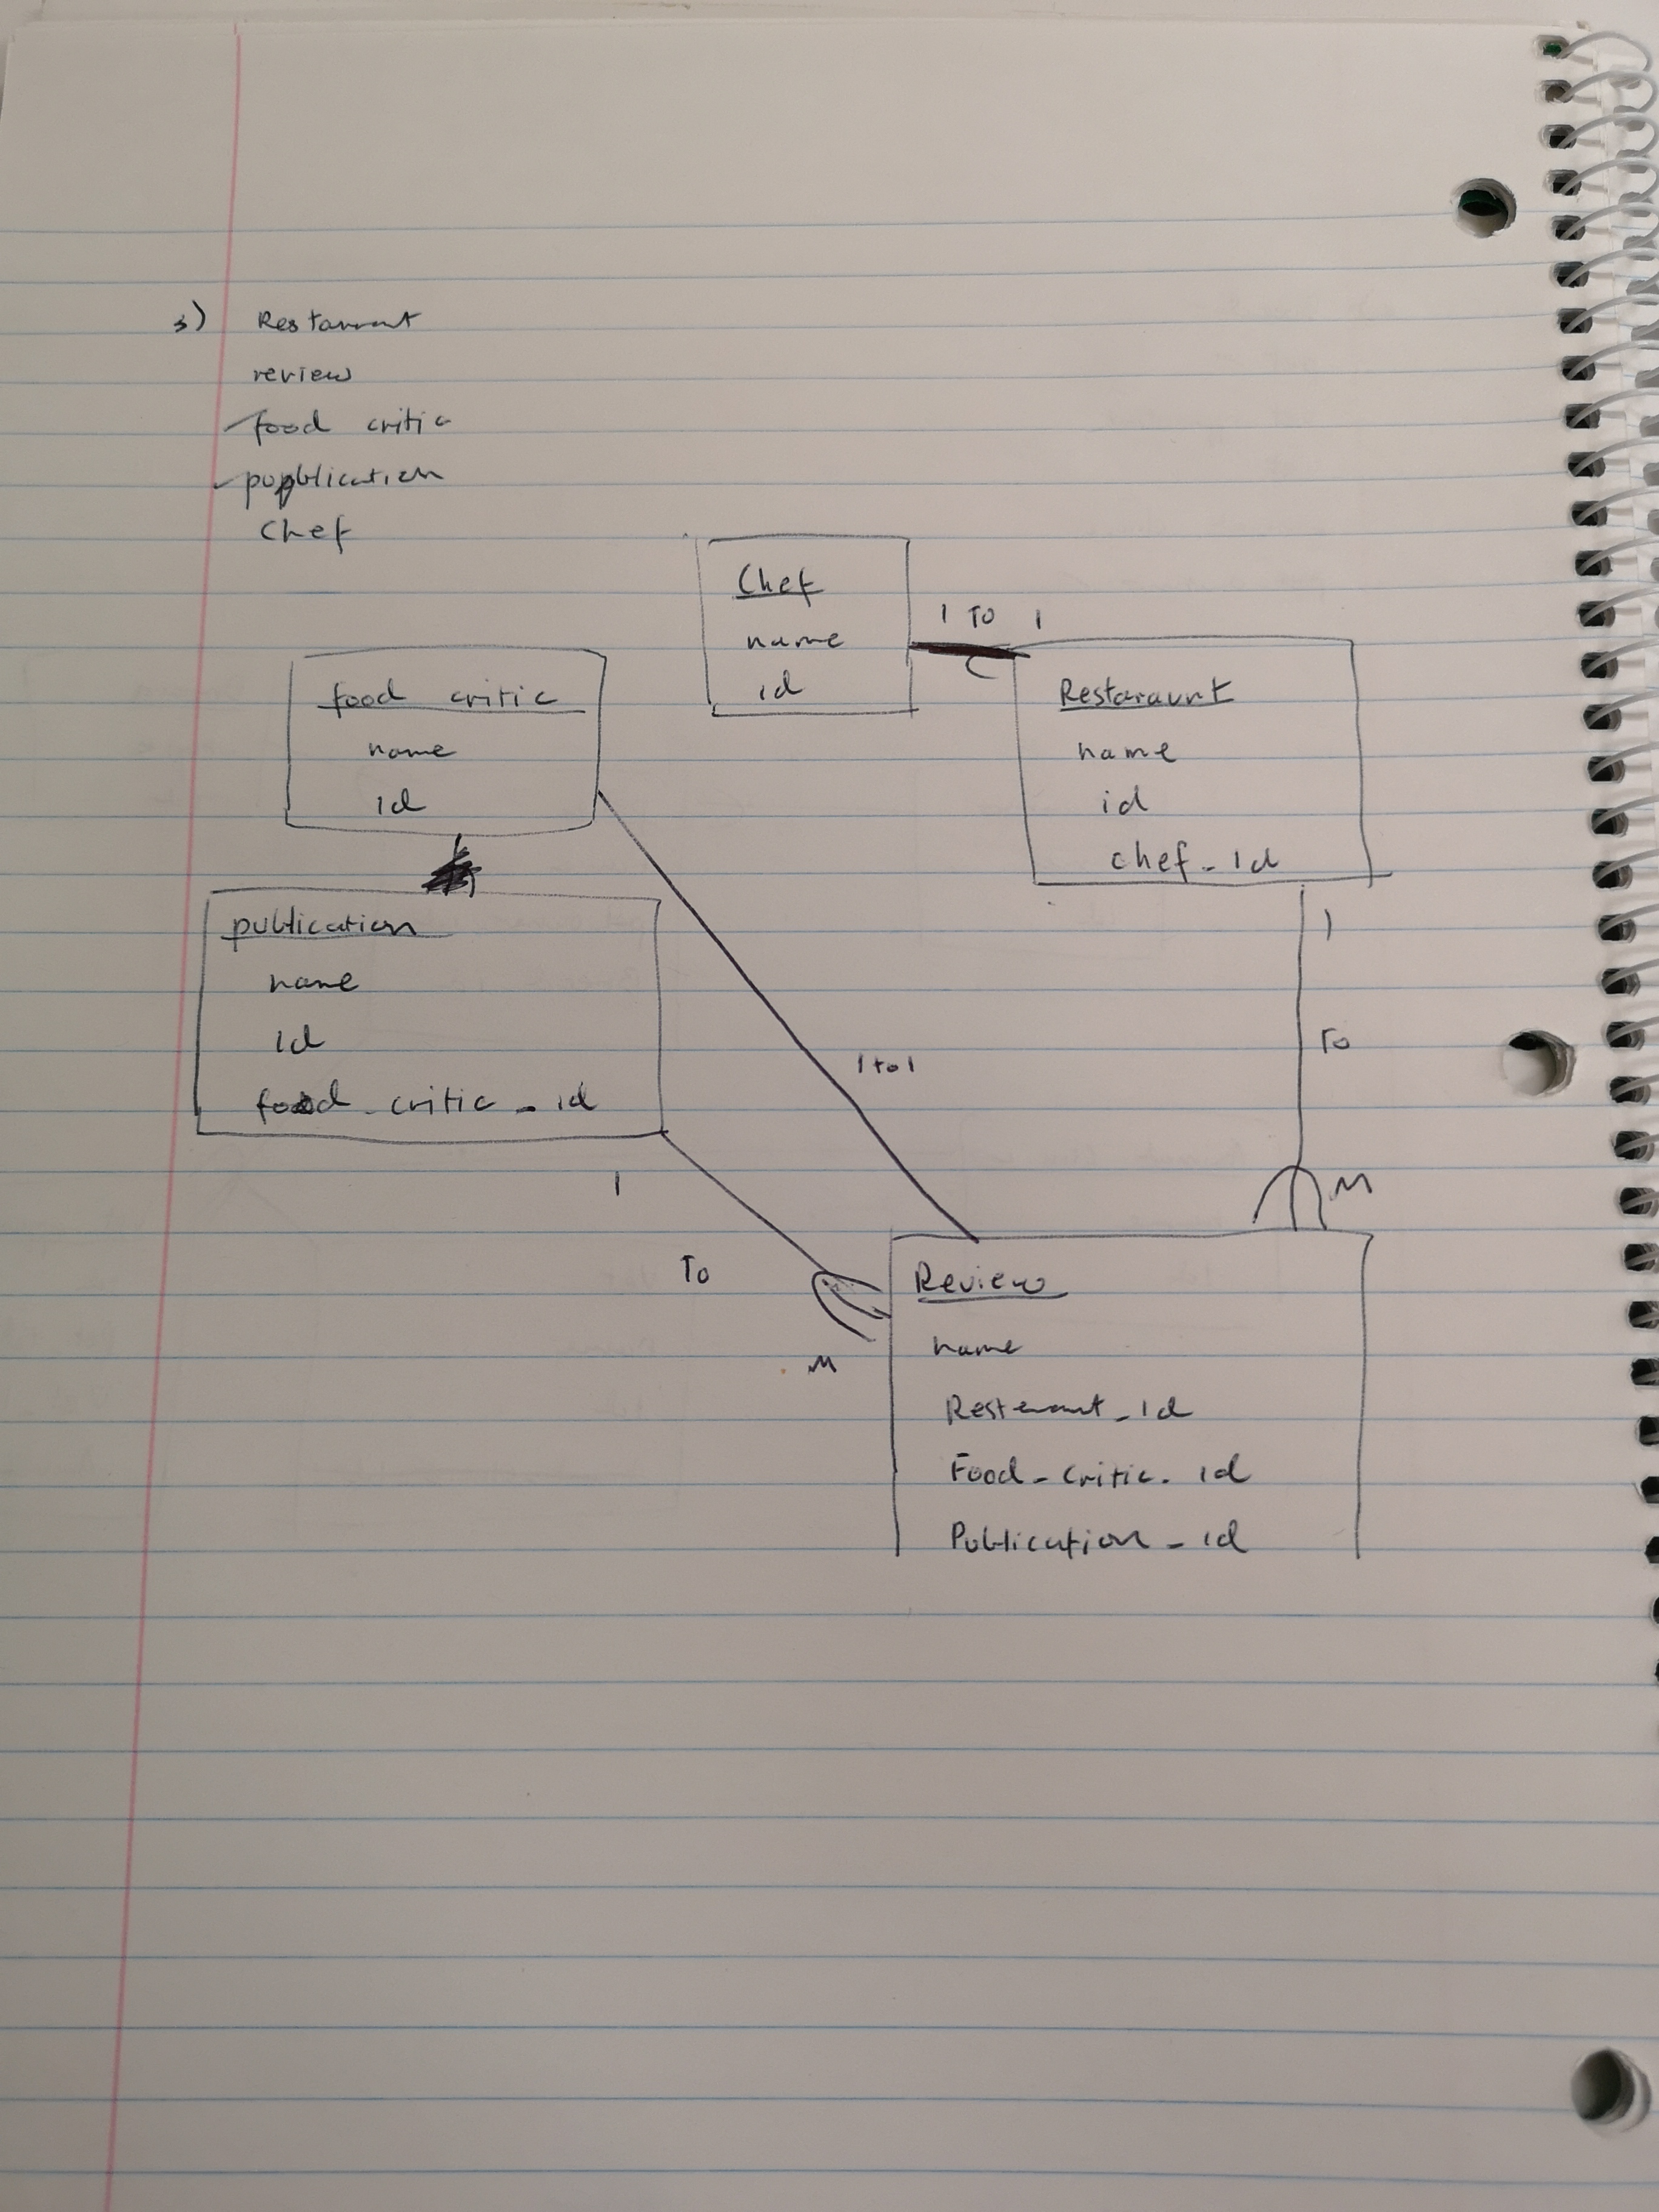 3) Restaurant
review
food critic
publication
Chef
Chef
name
id
1 TO 1
food critic
name
id
Restaraunt
name
id
chef_id
publication
name
id
food_critic_id
1 to 1
1
To
M
1
To
M
Review
name
Restaurant_id
Food_critic_id
Publication_id